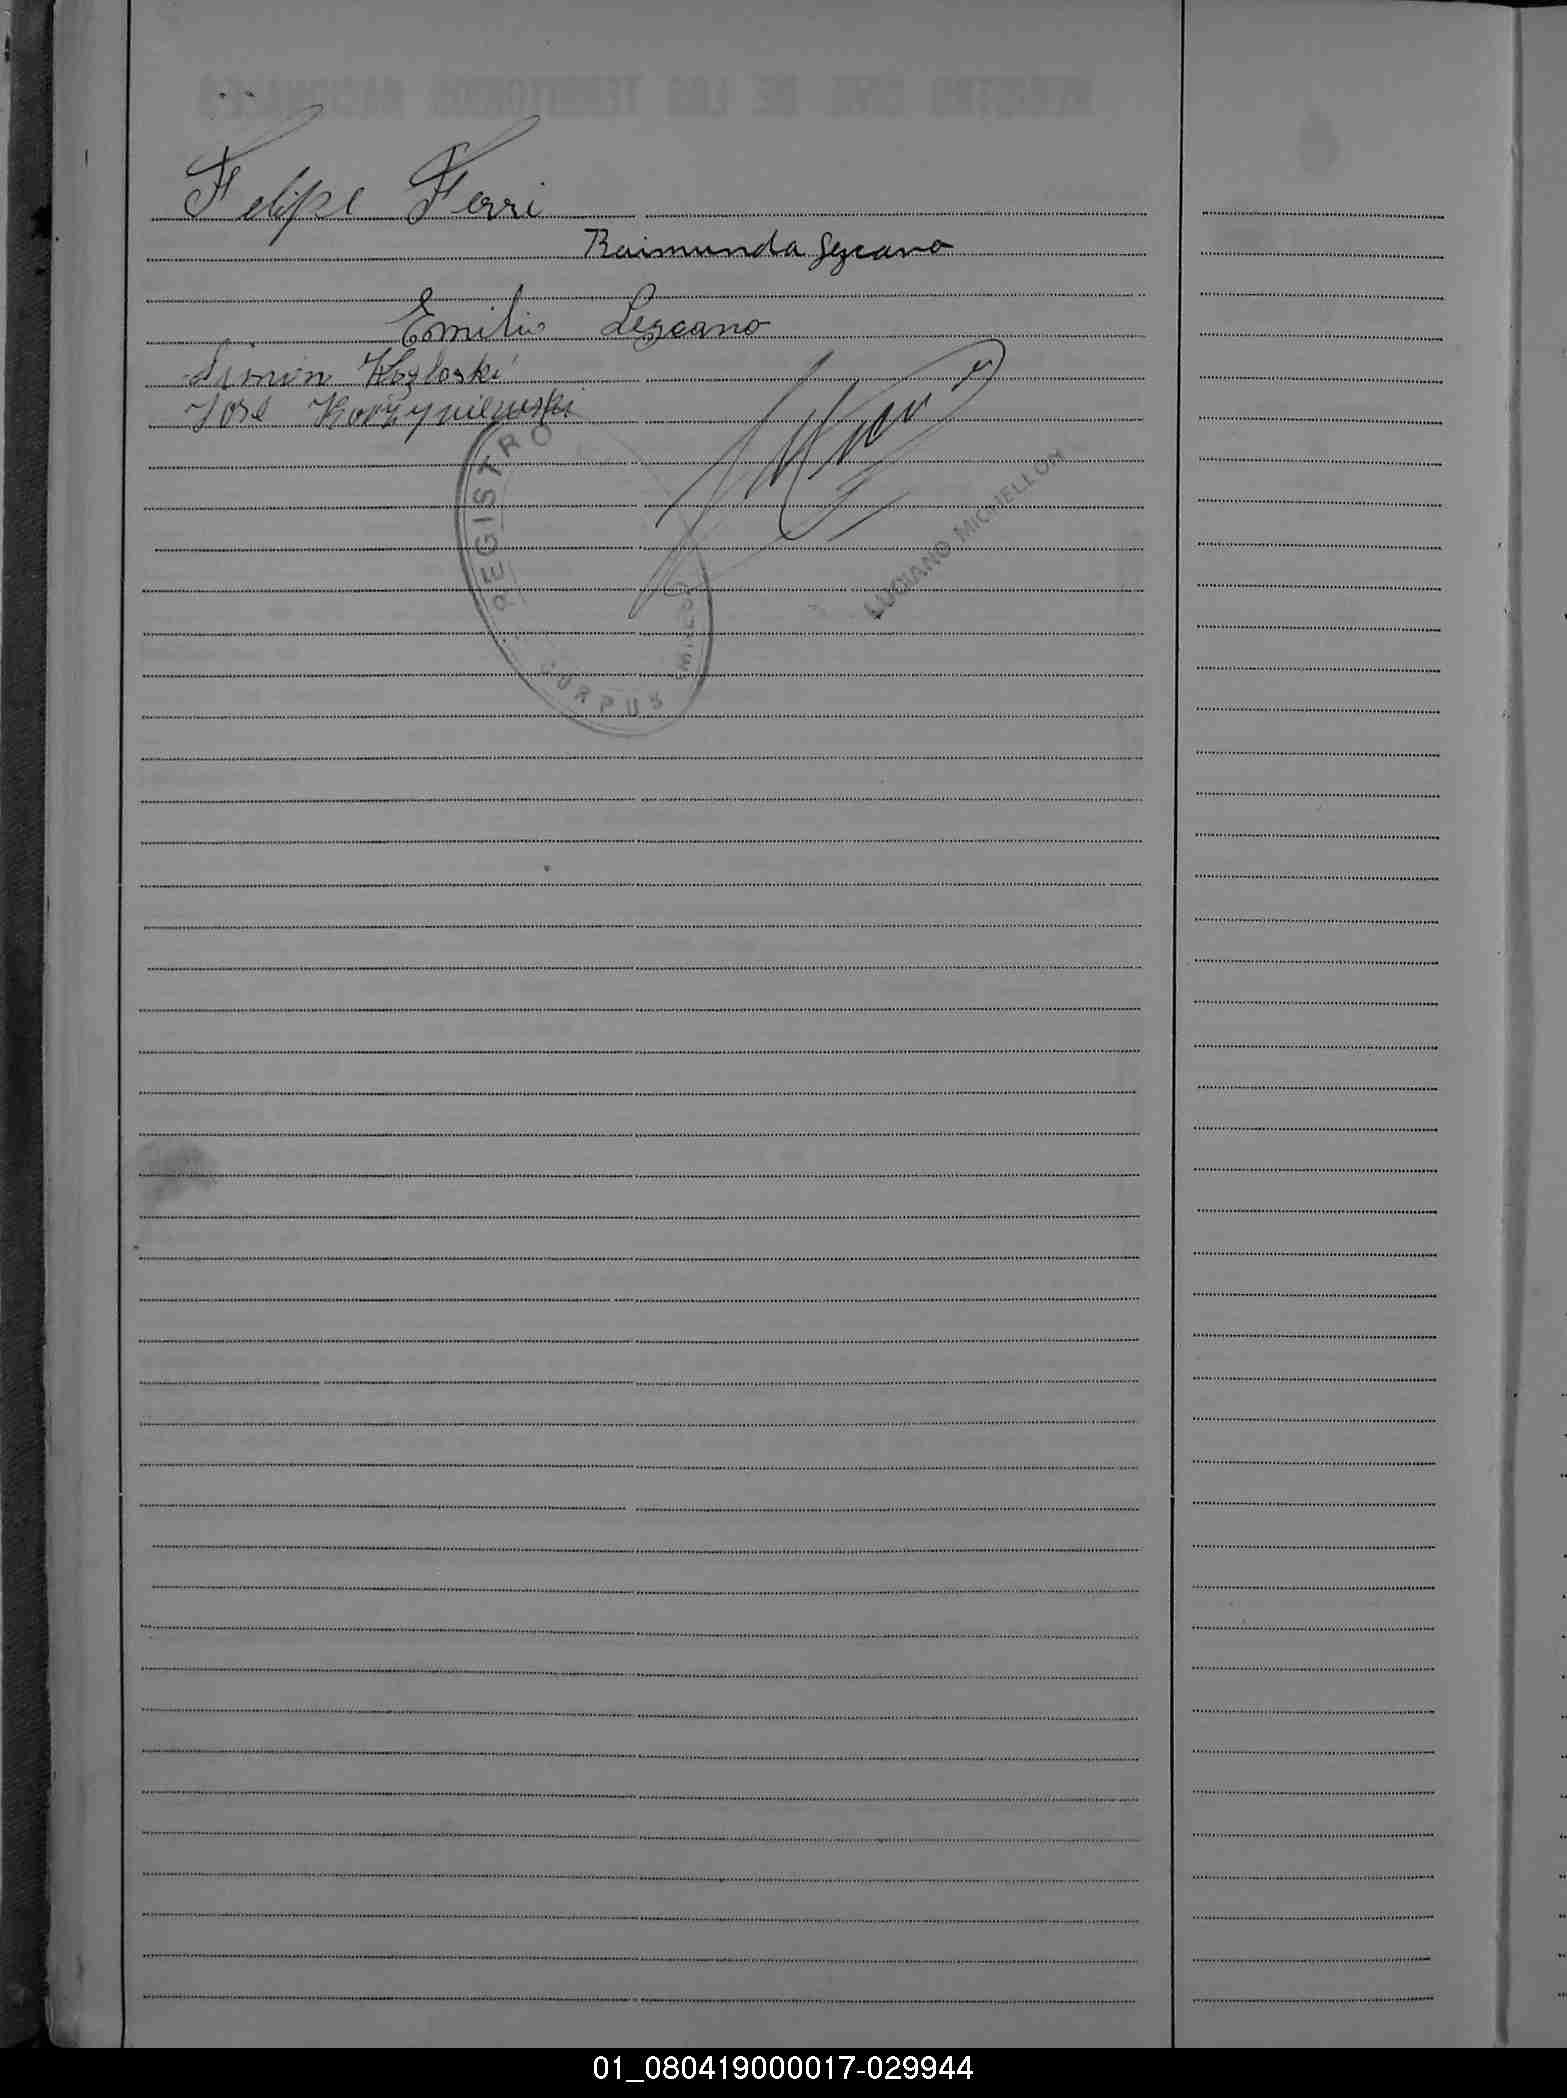 Felipe Ferri
Raimunda Lezcano
Emilio Lezcano
Simon Kozloski
José Korzyniewski
REGISTRO
CORPUS
LUCIANO MICHELLON
01_080419000017-029944